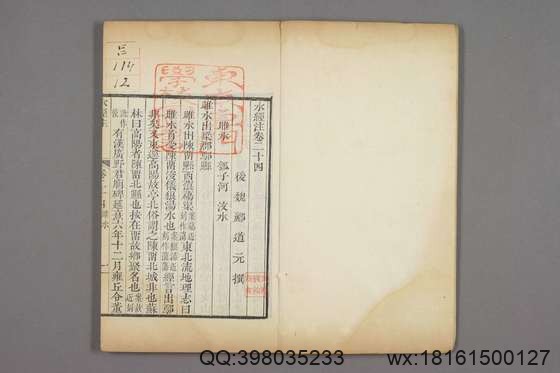 水經注卷二十四
後魏酈道元撰
睢水 瓠子河 汶水
睢水出梁郡鄢縣
睢水出陳留縣西蒗蕩渠東北流地理志曰
睢水首受陳留浚儀狼湯水也經言出鄢
非矣又東逕高陽故亭北俗謂之陳留北城非也蘇
林曰高陽者陳留北縣也按在留故鄉聚名也
有漢廣野君廟碑延熹六年十二月雍丘令董
呂
114
12
QQ:398035233
wx:18161500127